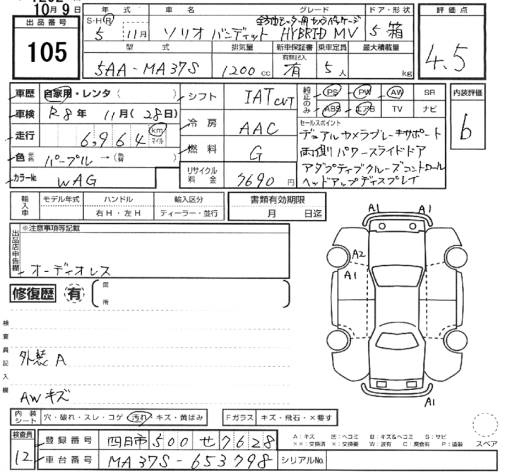 10月9日
出品番号
105
年式 車名 グレード ドア・形状
S・H・R 5年11月 ソリオ バンディット HYBRID MV 5 箱
型式 排気量 新車保証書 乗車定員 最大積載量
5AA-MA37S 1200cc 有 5人 kg
評価点
4.5
車歴 自家用・レンタ( )
車検 R8年11月(28日)
走行 6,964 km マイル
色 パープル→( )
カラーNo. WAG
シフト IAT CVT
冷房 AAC
燃料 G
リサイクル料金 7690円
純正のみ PS PW AW SR
ABS エアB TV ナビ
セールスポイント
デュアルカメラブレーキサポート
両側パワースライドドア
アダプティブクルーズコントロール
ヘッドアップディスプレイ
内装評価
b
輸入車 モデル年式 ハンドル 輸入区分
年 右H・左H ディーラー・並行
書類有効期限
月 日迄
出品店申告欄
※注意事項等記載
オーディオレス
修復歴 有
検査員記入欄
外装A
AWキズ
A1 A1
A2
A1
A1 A1
内装シート 穴・破れ・スレ・コゲ 汚れ キズ・黄ばみ
Fガラス キズ・飛石・×要す
検査員 12
登録番号 四日市500せ7628
車台番号 MA37S-653798
シリアルNo.
A:キズ E:エクボ B:キズ&ヘコミ S:サビ
スペア